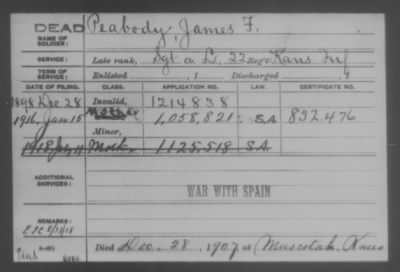 DEAD
NAME OF SOLDIER: Peabody, James F.
SERVICE: Late rank, Sgt Co. L, 22 Reg't Kans Inf
TERM OF SERVICE: Enlisted , 1 Discharged , 1
DATE OF FILING. CLASS. APPLICATION NO. LAW. CERTIFICATE NO.
1898 Dec 28 Invalid, 1214838
1916, Jan 15 Mother 1,058,821 S.A. 832.476
Minor,
1918 July 11 Moth 1125.518 S.A.
ADDITIONAL SERVICES:
WAR WITH SPAIN
REMARKS:
Died Dec. 28, 1907 at Muscotah, Kans